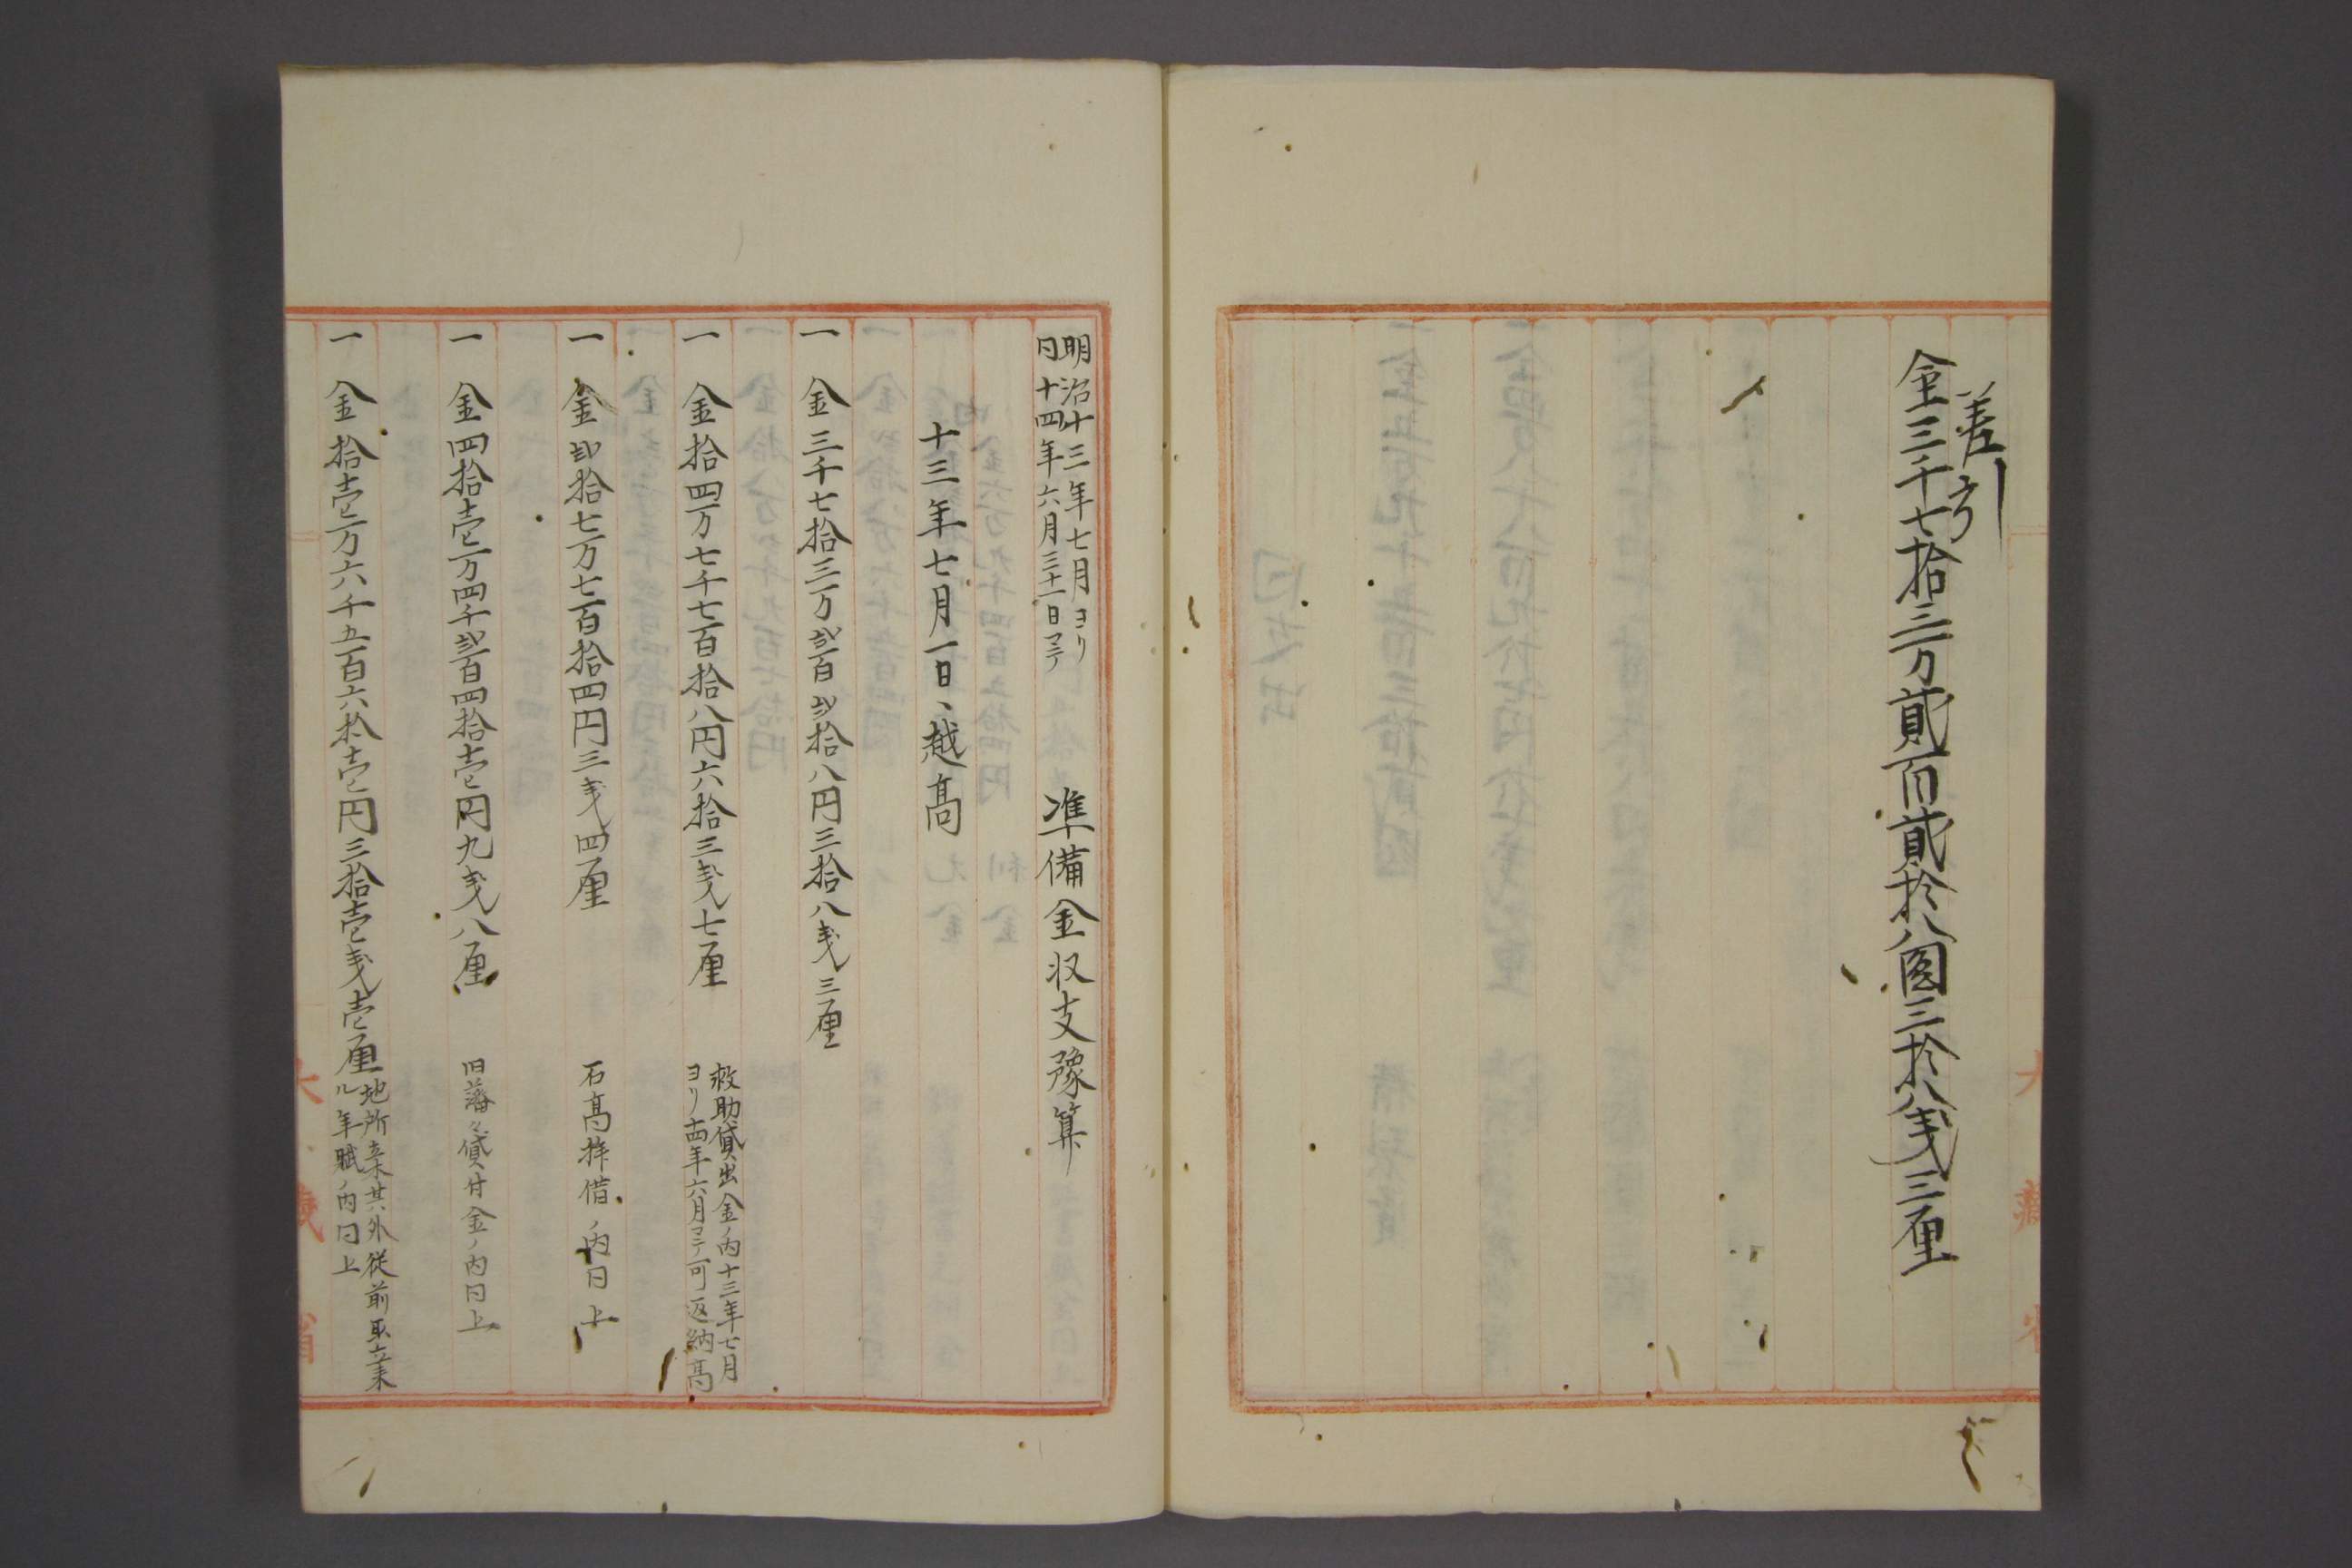 差引
金三千七拾三万貳百貳拾八圓三拾八戋三厘
明治十三年七月ヨリ
同十四年六月三十日マテ
準備金収支豫算
十三年七月一日ヽ越高
一 金三千七拾三万弐百弐拾八円三拾八戋三厘
一 金拾四万七千七百拾八円六拾三戋七厘
救助貸出金ノ内十三年七月
ヨリ十四年六月マテ可返納高
一 金弐拾七万七百拾四円三戋四厘
石高拝借ノ内同上
一 金四拾壱万四千弐百四拾壱円九戋八厘
旧藩々貸付金ノ内同上
一 金拾壱万六千五百六拾壱円三拾壱戋壱厘
地所立木其外従前取立来
ル年賦ノ内同上
大藏省